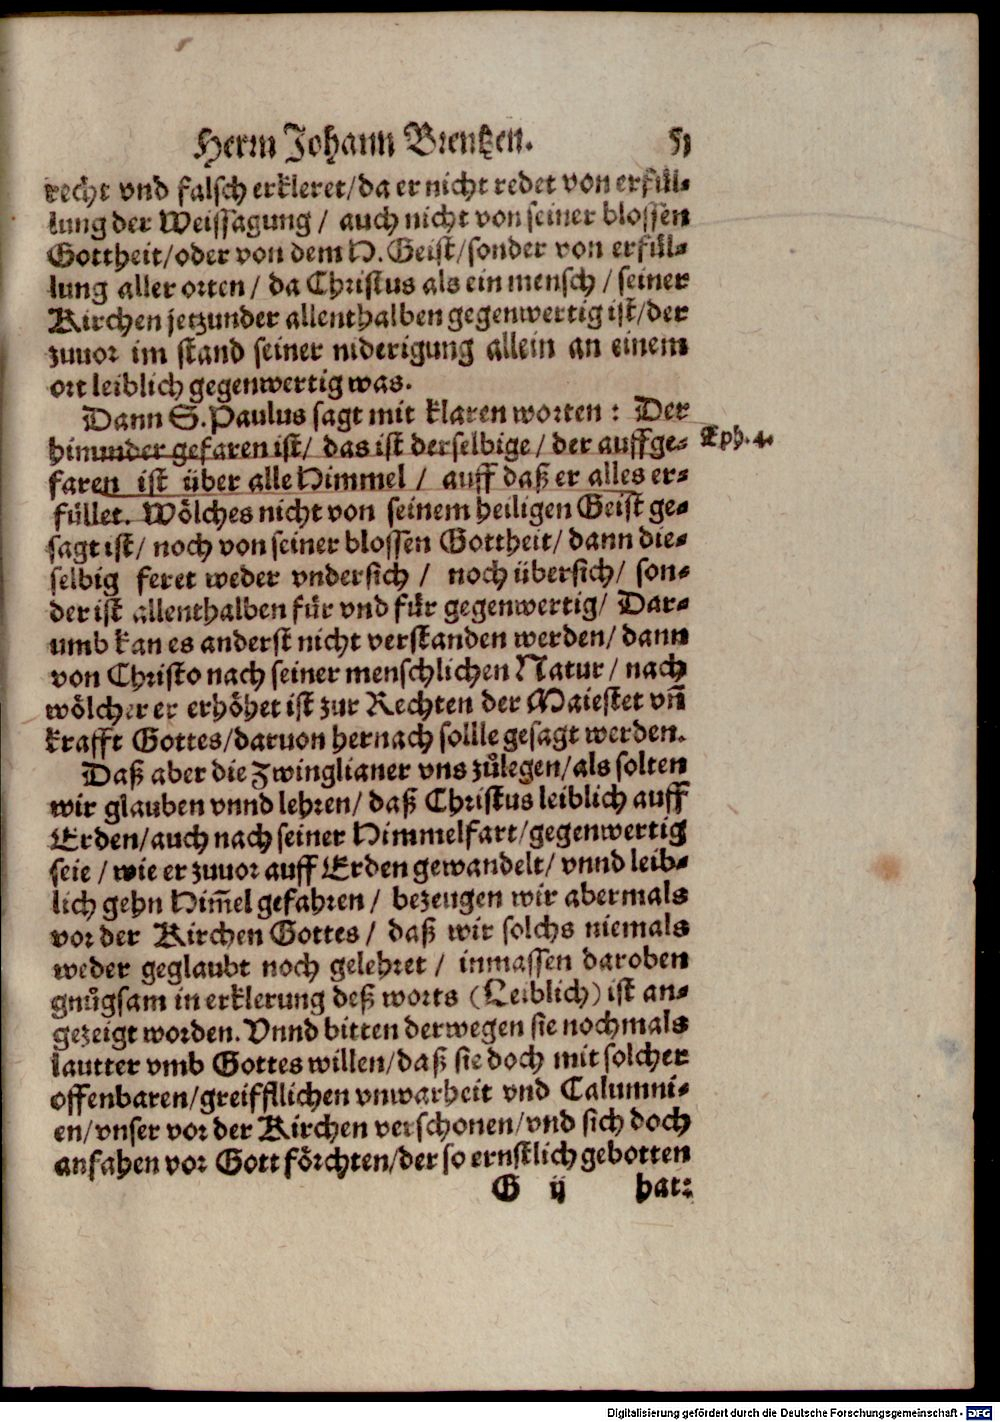 Herrn Johann Brentzen. 51
recht vnd falsch erkleret/da er nicht redet von erfül-
lung der Weissagung / auch nicht von seiner blossen
Gottheit/oder von dem H. Geist/sonder von erfül-
lung aller orten / da Christus als ein mensch / seiner
Kirchen jetzunder allenthalben gegenwertig ist/der
zuuor im stand seiner niderigung allein an einem
ort leiblich gegenwertig was.
Dann S. Paulus sagt mit klaren worten : Der
hinunder gefaren ist/ das ist derselbige / der auffge-
Eph. 4.
faren ist über alle Himmel / auff daß er alles er-
füllet. Wölches nicht von seinem heiligen Geist ge-
sagt ist/ noch von seiner blossen Gottheit/ dann die-
selbig feret weder vndersich / noch übersich/ son-
der ist allenthalben für vnd für gegenwertig/ Dar-
umb kan es anderst nicht verstanden werden/ dann
von Christo nach seiner menschlichen Natur / nach
wölcher er erhöhet ist zur Rechten der Maiestet vñ
krafft Gottes/daruon hernach sollle gesagt werden.
Daß aber die Zwinglianer vns zůlegen/als solten
wir glauben vnnd lehren/ daß Christus leiblich auff
Erden/auch nach seiner Himmelfart/gegenwertig
seie / wie er zuuor auff Erden gewandelt/ vnnd leib-
lich gehn Him̃el gefahren / bezeugen wir abermals
vor der Kirchen Gottes / daß wir solchs niemals
weder geglaubt noch gelehret / inmassen daroben
gnůgsam in erklerung deß worts (Leiblich) ist an-
gezeigt worden. Vnnd bitten derwegen sie nochmals
lautter vmb Gottes willen/daß sie doch mit solcher
offenbaren/greifflichen vnwarheit vnd Calumni-
en/vnser vor der Kirchen verschonen/vnd sich doch
anfahen vor Gott förchten/der so ernstlich gebotten
G ij hat:
Digitalisierung gefördert durch die Deutsche Forschungsgemeinschaft - DFG